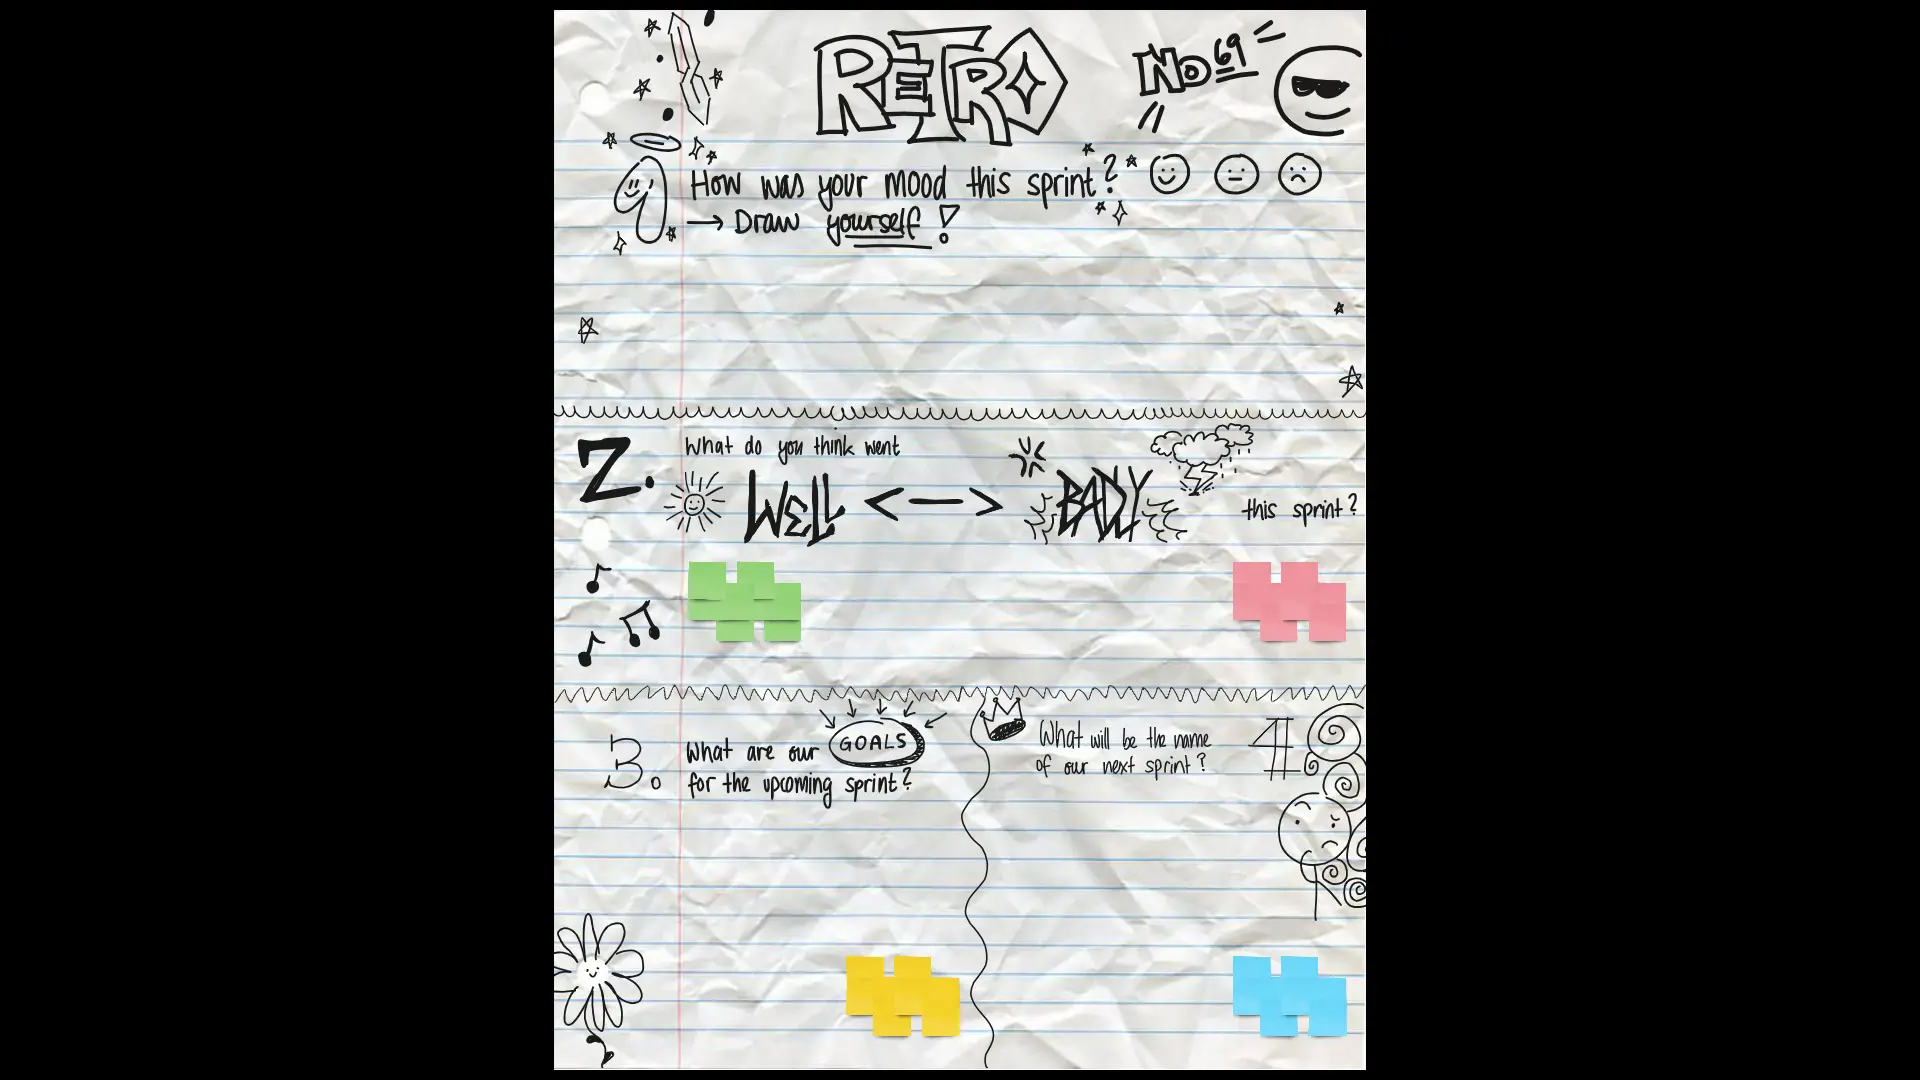 RETRO
No 69
1
How was your mood this sprint?
→ Draw yourself!
2.
What do you think went
WELL <—> BADLY
this sprint?
3.
What are our GOALS
for the upcoming sprint?
4
What will be the name
of our next sprint?